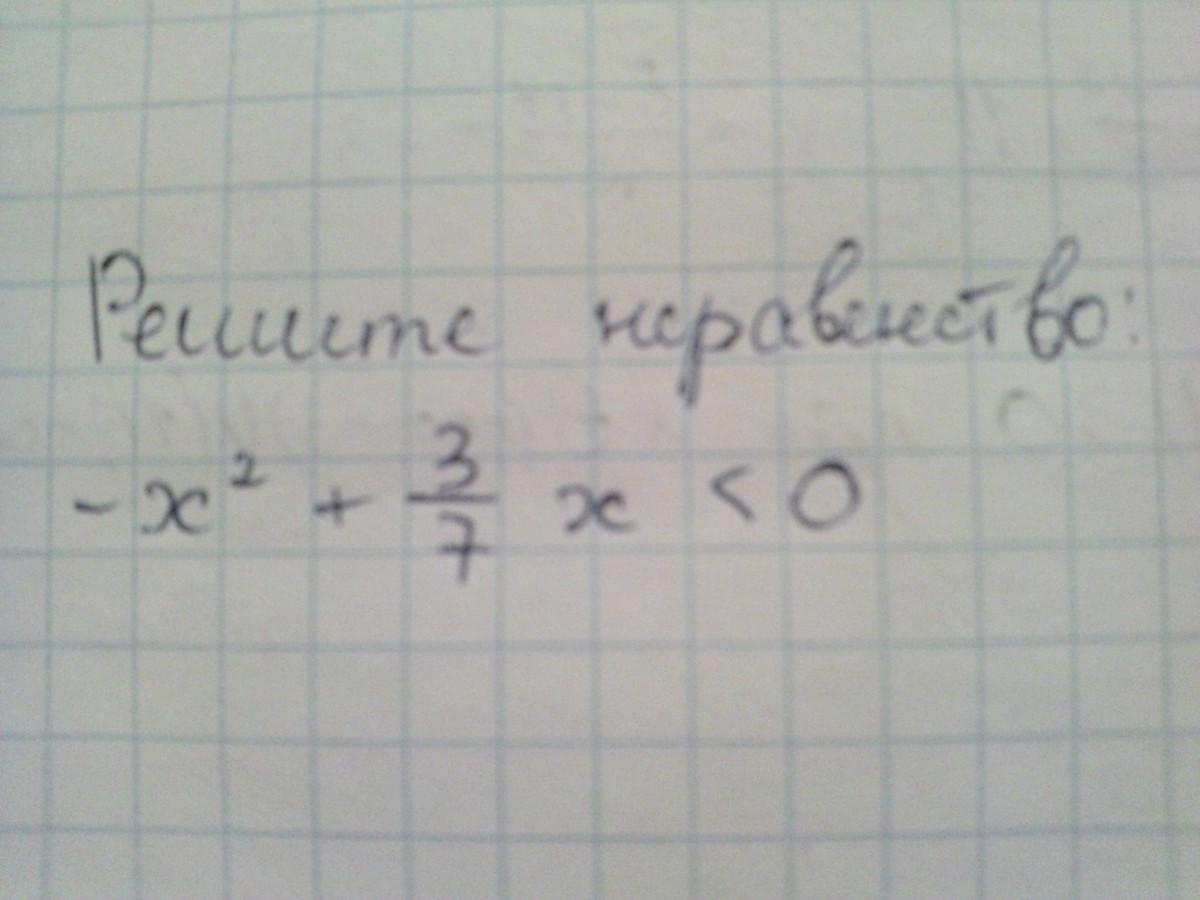 Решите неравенство:
-x² + 3/7 x < 0